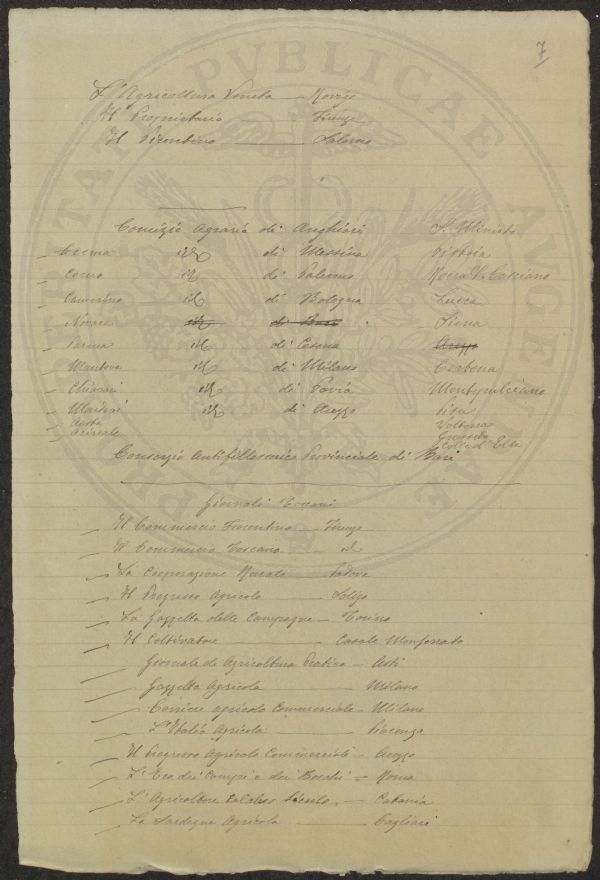 7
L'Agricoltura Veneta — Rovigo
Il Proprietario — Firenze
Il Picentino — Salerno
Comizio Agrario di Anghiari S. Miniato
Crema id di Messina Pistoia
Como id di Palermo Rocca S. Casciano
Camerino id di Bologna Lucca
Novara id di Bari Siena
Parma id di Cesena Arezzo
Mantova id di Milano Cortona
Chiari id di Pavia Montepulciano
id di Arezzo Pisa
Aosta Volterra
Acireale Grosseto
Colle d'Elsa
Consorzio Antifillosserico Provinciale di Bari
Giornali Toscani
Il Commercio Fiorentino — Firenze
Il Commercio Toscano — id
La Cooperazione Rurale Padova
Il Progresso Agricolo — Soligo
La Gazzetta delle Campagne — Torino
Il Coltivatore — Casale Monferrato
Giornale di Agricoltura Pratica — Asti
Gazzetta Agricola — Milano
Corriere agricolo Commerciale — Milano
L'Italia Agricola — Piacenza
Il Progresso Agricolo Commerciale — Arezzo
L'Eco dei Campi e dei Boschi — Roma
L'Agricoltore Calabro Siculo — Catania
La Sardegna Agricola — Cagliari
PVBLICAE